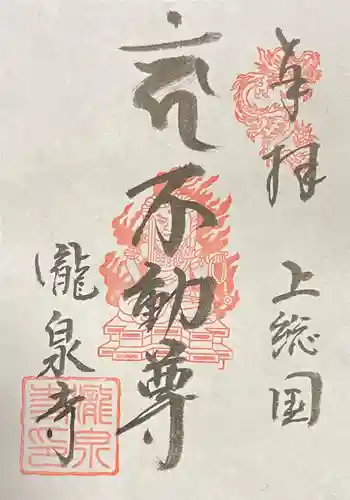 奉拝
上総国
不動尊
瀧泉寺
瀧泉
寺印